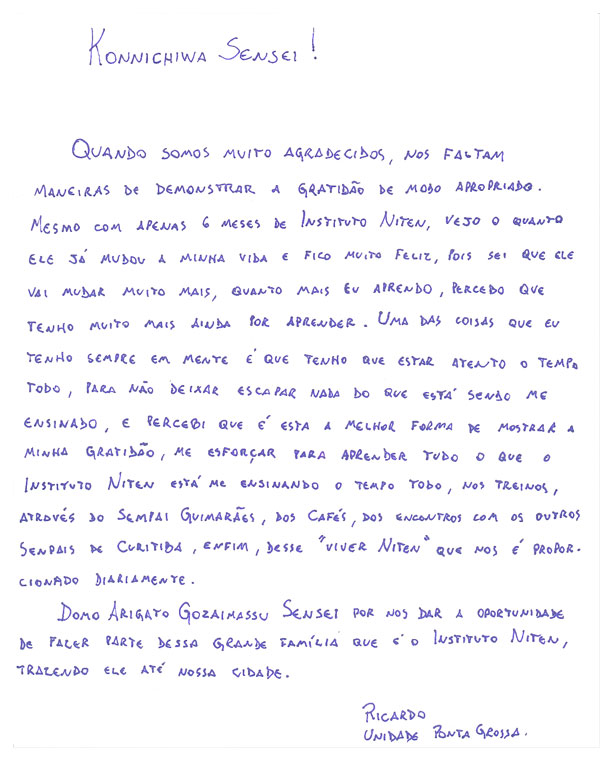 KONNICHIWA SENSEI!
QUANDO SOMOS MUITO AGRADECIDOS, NOS FALTAM
MANEIRAS DE DEMONSTRAR A GRATIDÃO DE MODO APROPRIADO.
MESMO COM APENAS 6 MESES DE INSTITUTO NITEN, VEJO O QUANTO
ELE JÁ MUDOU A MINHA VIDA E FICO MUITO FELIZ, POIS SEI QUE ELE
VAI MUDAR MUITO MAIS, QUANTO MAIS EU APRENDO, PERCEBO QUE
TENHO MUITO MAIS AINDA POR APRENDER. UMA DAS COISAS QUE EU
TENHO SEMPRE EM MENTE É QUE TENHO QUE ESTAR ATENTO O TEMPO
TODO, PARA NÃO DEIXAR ESCAPAR NADA DO QUE ESTÁ SENDO ME
ENSINADO, E PERCEBI QUE É ESTA A MELHOR FORMA DE MOSTRAR A
MINHA GRATIDÃO, ME ESFORÇAR PARA APRENDER TUDO O QUE O
INSTITUTO NITEN ESTÁ ME ENSINANDO O TEMPO TODO, NOS TREINOS,
ATRAVÉS DO SEMPAI GUIMARÃES, DOS CAFÉS, DOS ENCONTROS COM OS OUTROS
SENPAIS DE CURITIBA, ENFIM, DESSE "VIVER NITEN" QUE NOS É PROPOR-
CIONADO DIARIAMENTE.
DOMO ARIGATO GOZAIMASSU SENSEI POR NOS DAR A OPORTUNIDADE
DE FAZER PARTE DESSA GRANDE FAMÍLIA QUE É O INSTITUTO NITEN,
TRAZENDO ELE ATÉ NOSSA CIDADE.
RICARDO
UNIDADE PONTA GROSSA.